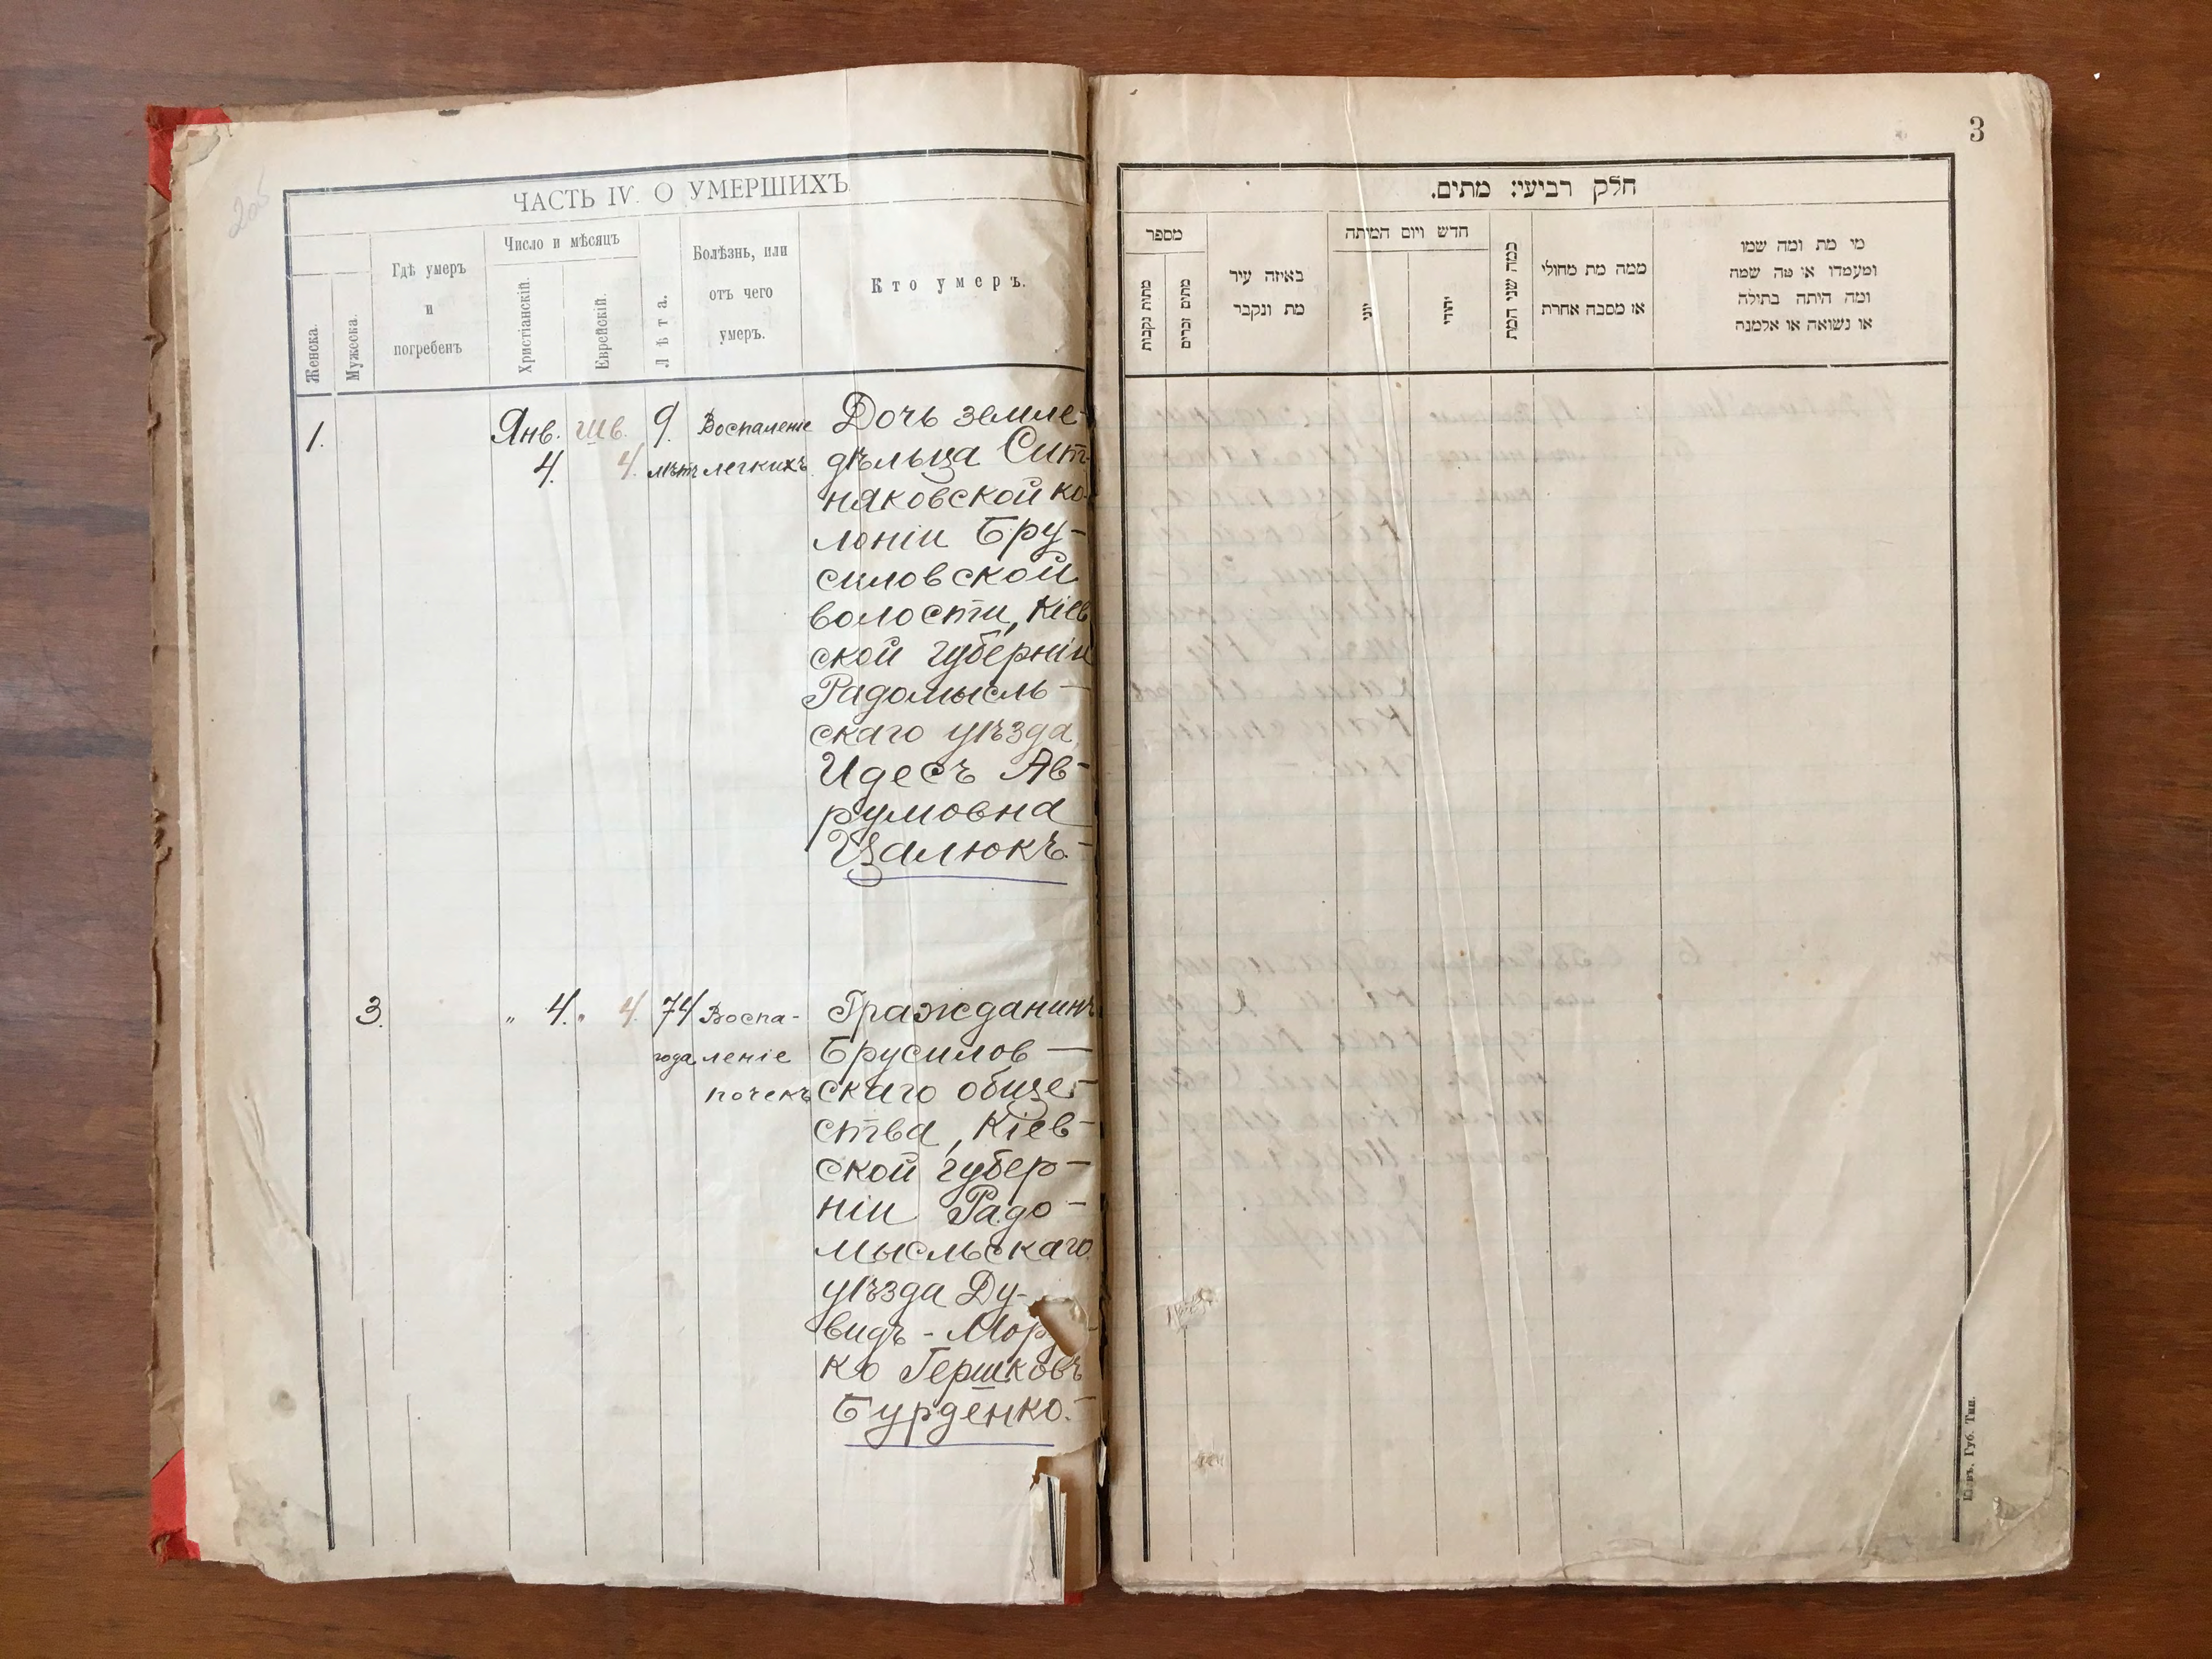 205
ЧАСТЬ IV. О УМЕРШИХЪ
Женска.
Мужеска.
Гдѣ умеръ
и
погребенъ
Число и мѣсяцъ
Христіанскій.
Еврейскій.
Лѣта.
Болѣзнь, или
отъ чего
умеръ.
Кто умеръ.
1.
Янв. Шв. 9. Воспаленіе
4. 4. лѣтъ легкихъ
Дочь земле-
дѣльца Сит-
няковской ко-
лоніи Бру-
силовской
волости, Кіев
ской губерніи
Радомысль-
скаго уѣзда
Идесъ Ав-
румовна
Цалюкъ.-
3.
" 4. " 4. 74 Воспа-
года леніе
почекъ
Гражданинъ
Брусилов-
скаго обще-
ства, Кіев-
ской губер-
ніи Радо-
мысльскаго
уѣзда Ду-
видъ-Мор
ко Гершковъ
Бурденко.-
3
חלק רביעי: מתים.
מספר
מתות נקבות
מתים זכרים
באיזה עיר
מת ונקבר
חדש ויום המיתה
יוני
יהודי
כמה שני המת
ממה מת מחולי
או מסבה אחרת
מי מת ומה שמו
ומעמדו או מה שמה
ומה היתה בתולה
או נשואה או אלמנה
Кіевъ. Губ. Тип.